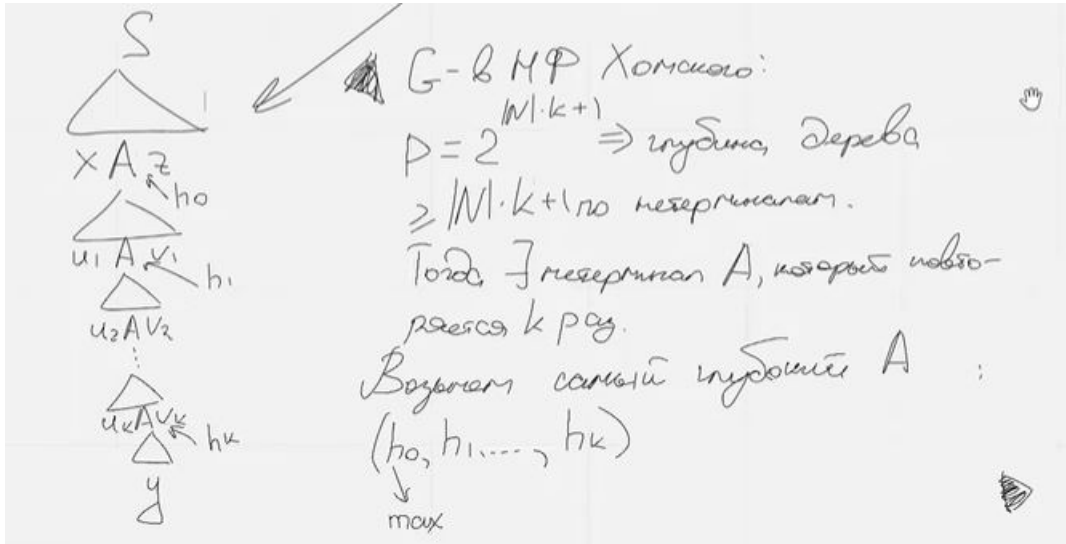 S
x A z
h₀
u₁ A v₁
h₁
u₂ A v₂
u_k A v_k
h_k
y
G - в НФ Хомского:
p = 2^{|N|·k+1} ⇒ глубина дерева
≥ |N|·k+1 по нетерминалам.
Тогда ∃ нетерминал A, который повто-
ряется k раз.
Возьмем самый глубокий A :
(h₀, h₁, ...., h_k)
max